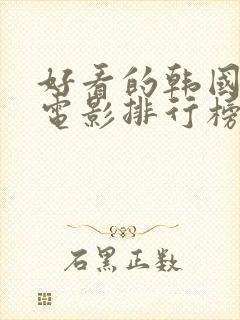 好看的韩国
电影排行榜
石黑正数